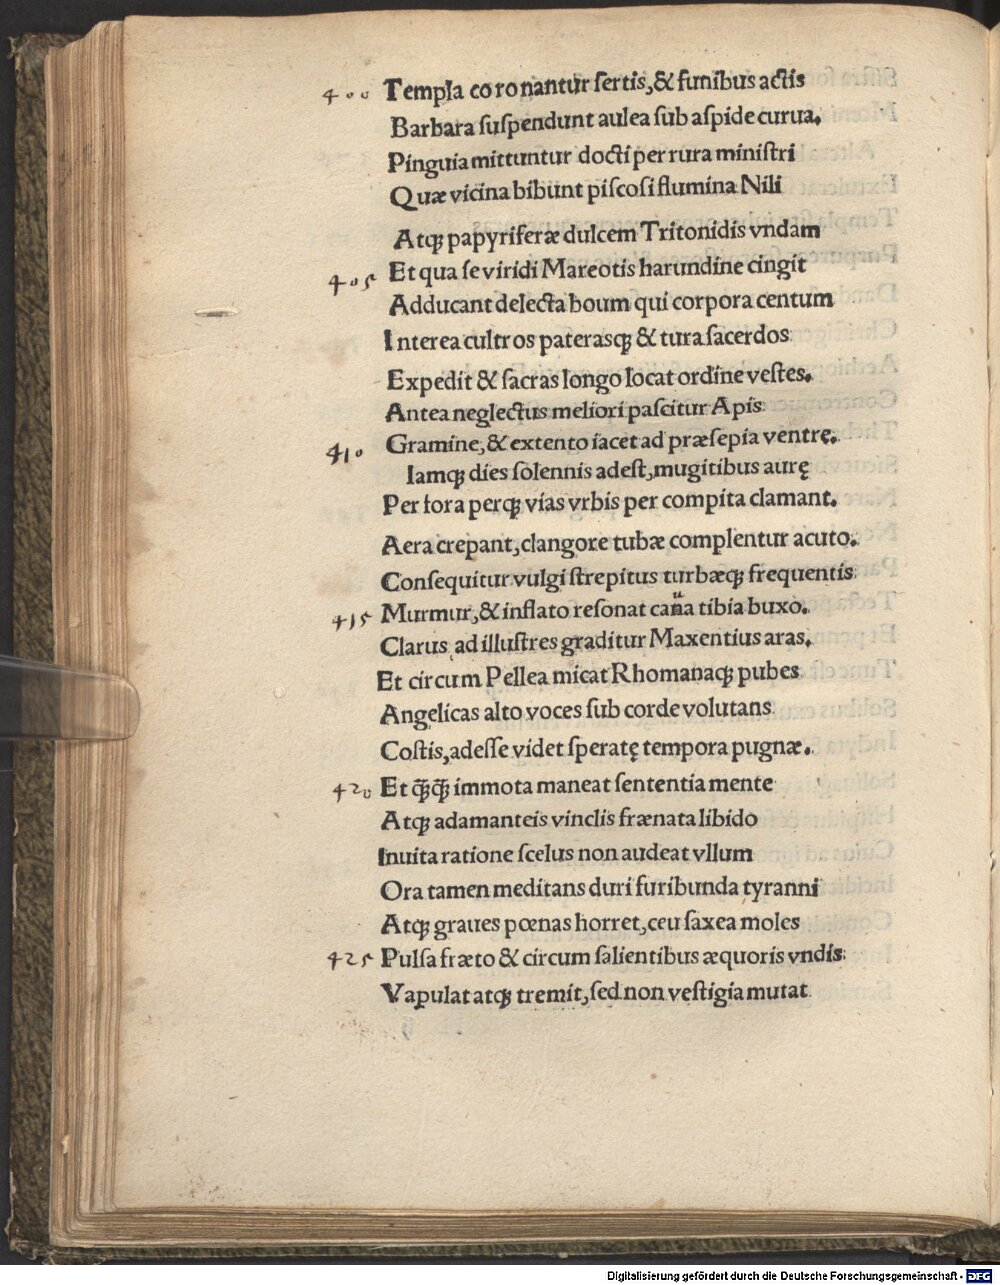 400 Templa coronantur sertis, & funibus actis
Barbara suspendunt aulea sub aspide curua.
Pinguia mittuntur docti per rura ministri
Quæ vicina bibunt piscosi flumina Nili
Atqꝫ papyriferæ dulcem Tritonidis vndam
405 Et qua se viridi Mareotis harundine cingit
Adducant delecta boum qui corpora centum
Interea cultros paterasqꝫ & tura sacerdos
Expedit & sacras longo locat ordine vestes.
Antea neglectus meliori pascitur Apis
410 Gramine, & extento iacet ad præsepia ventrę.
Iamqꝫ dies solennis adest, mugitibus aurę
Per fora perqꝫ vias vrbis per compita clamant.
Aera crepant, clangore tubæ complentur acuto.
Consequitur vulgi strepitus turbæqꝫ frequentis
415 Murmur, & inflato resonat caua tibia buxo.
Clarus ad illustres graditur Maxentius aras.
Et circum Pellea micat Rhomanaqꝫ pubes
Angelicas alto voces sub corde volutans
Costis, adesse videt speratę tempora pugnæ.
420 Et qꝫ̃qꝫ̃ immota maneat sententia mente
Atqꝫ adamanteis vinclis frænata libido
Inuita ratione scelus non audeat vllum
Ora tamen meditans duri furibunda tyranni
Atqꝫ graues pœnas horret, ceu saxea moles
425 Pulsa fræto & circum salientibus æquoris vndis:
Vapulat atqꝫ tremit, sed non vestigia mutat
Digitalisierung gefördert durch die Deutsche Forschungsgemeinschaft - DFG